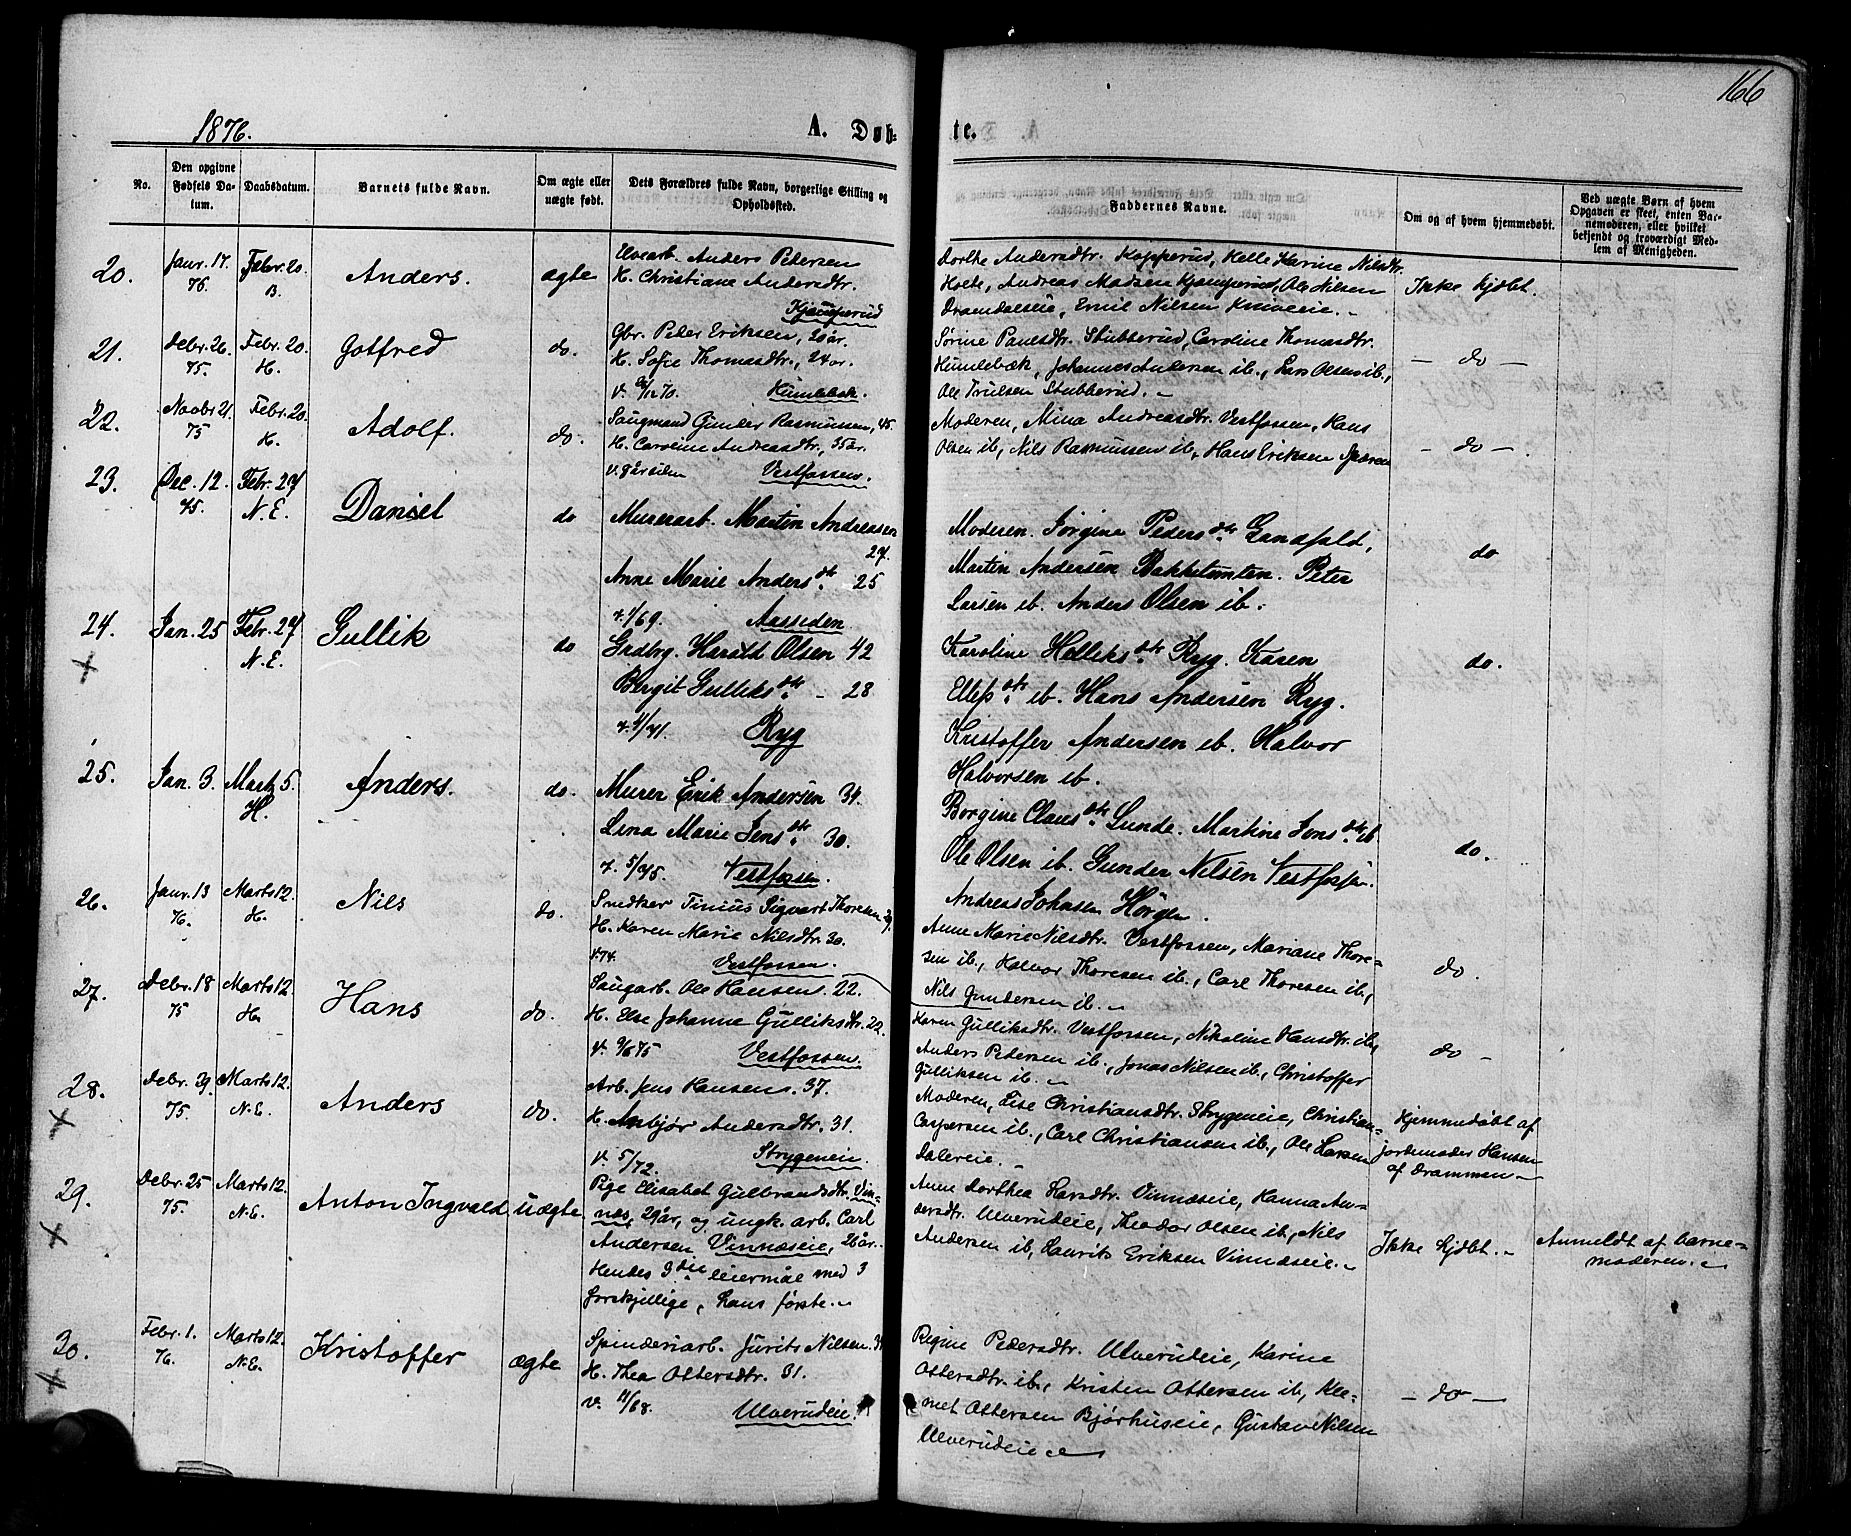 166
1876.
A. Døb-
te.
No.
Den opgivne Fødsels Da-tum.
Daabsdatum.
Barnets fulde Navn.
Om ægte eller uægte født.
Dets Forældres fulde Navn, borgerlige Stilling og Opholdssted.
Faddernes Navne.
Om og af hvem hjemmedøbt.
Ved uægte Børn af hvem Opgaven er skeet, enten Bar-nemoderen, eller hvilket bekjendt og troværdigt Med-lem af Menigheden.
20.
Janr. 17. 76.
Febr. 20. B.
Anders.
ægte
Anders Pedersen
H. Christiane Andersdtr.
Kjamperud
Dorthe Andersdtr. Kopperud, Helle Karine Nilsdtr.
Holte, Andreas Madsen Kjamperud, Ole Nilsen
Dramdalseie, Emil Nilsen Kniveeie.
Ikke hjdbt.
21.
Debr. 26. 75.
Febr. 20. H.
Gotfred
do.
Gbr. Peder Eriksen, 20 år.
H. Sofie Thomasdtr., 24 år.
Humlebæk.
Sørine Paulsdtr. Stubberud, Caroline Thomasdtr.
Humlebæk, Johannes Andersen ib., Lars Olsen ib.,
Ole Trulsen Stubberud.
— do —
22.
Novbr 21. 75
Febr. 20. H.
Adolf.
do.
Saugmand Gunder Rasmussen, 45.
H. Caroline Andreasdtr., 35 år.
v. går siden Vestfossen.
Moderen, Mina Andreasdtr. Vestfossen, Hans
Olsen ib., Nils Rasmussen ib., Hans Eriksen
— do —.
23.
Dec. 12. 75.
Febr. 27 N.E.
Daniel
do
Murerarb. Martin Andreasen
27.
Anne Marie Andersdtr. 25
v. 1/69. Aassiden.
Moderen. Jørgine Pedersdtr.
Martin Andersen Bakketomten. Peter
Larsen ib. Anders Olsen ib.
do
24.
Jan. 25
Febr. 27 N.E.
Gullik
do
Grdbrg. Harald Olsen 42
Bergit Gulliksdtr. - 28
Ryg
Karoline Helliksdtr. Ryg. Karen
Ellefsdtr. ib. Hans Andersen Ryg.
Kristoffer Andersen ib. Halvor
Halvorsen ib.
do.
25.
Jan. 3.
Marts 5. H.
Anders.
do.
Murer Erik Andersen 34.
Lina Marie Jensdtr. 30.
v. 5/75. Vestfossen.
Borgine Clausdtr. Lunde. Martine Jonsdtr. ib.
Ole Olsen ib. Gunder Nilsen Vestfossen.
Andreas Johnsen Hørgen.
do.
26.
Janr. 13 76.
Marts 12. H.
Nils
do.
Snedker Tinius Sigvart Thoresen 29.
H. Karen Marie Nilsdtr. 30.
v. 74. Vestfossen.
Anne Marie Nilsdtr. Vestfossen, Mariane Thore-
sen ib., Halvor Thoresen ib., Carl Thoresen ib.,
Nils Gundersen ib.
do.
27.
Debr. 18 75
Marts 12. H.
Hans
do.
Saugarb. Ole Hansen. 22.
H. Else Johanne Gulliksdtr. 22.
v. 9/6 75 Vestfossen
Karen Gulliksdtr. Vestfossen, Nikoline Hansdtr. ib.,
Anders Pedersen ib., Jonas Nilsen ib., Christoffer
Gulliksen ib.
do —
28.
Debr. 29. 75.
Marts 12. N.E.
Anders
do.
Arb. Jens Hansen. 37.
H. Anbjør Andersdtr. 31.
v. 5/72. Strygeneie.
Moderen, Lise Christiansdtr. Strygeneie, Christian
Caspersen ib., Carl Christiansen ib., Ole Larsen
Dalereie.
Hjemmedøbt af
Jordemoder Hansen
af Drammen
29.
Debr. 25 75.
Marts 12. N.E.
Anton Ingvald
uægte
Pige Elisabet Gulbrandsdtr. Vin-
næs, 29 år, og ungk. arb. Carl
Andersen Vinnæseie, 26 år.
Hendes 3die leiermål med 3
forskjellige, hans første.
Anne Dorthea Larsdtr. Vinnæseie, Hanna An-
dersdtr. Ulverudeie, Theodor Olsen ib., Nils
Andersen ib., Laurits Eriksen Vinnæseie.
Ikke hjdbt.
Anmeldt af barne-
moderen.
30.
Febr. 1. 76.
Marts 12. N.E.
Kristoffer
ægte
Spinderiarb. Jurits Nilsen. 31
H. Thea Ottersdtr. 31.
v. 11/68. Ulverudeie.
Regine Pedersdtr. Ulverudeie, Karine
Ottersdtr. ib., Kristen Ottersen ib., Kle-
met Ottersen Bjørhuseie, Gustav Nilsen
Ulverudeie
— do —